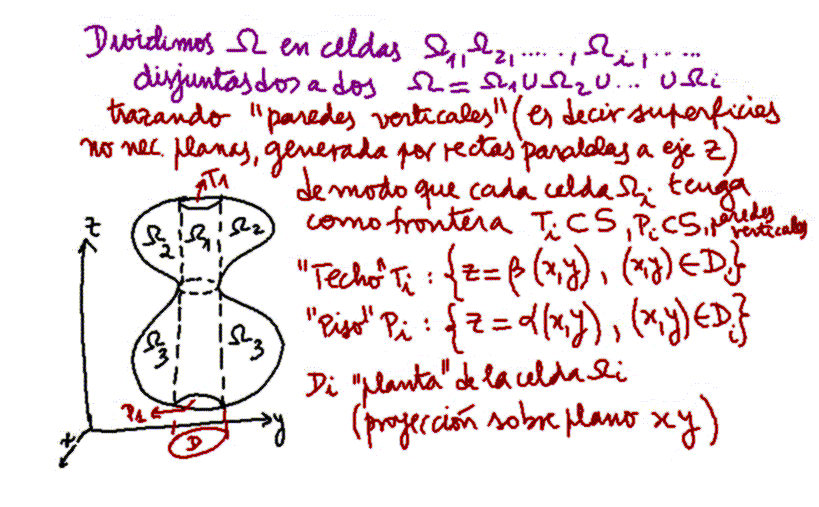 Dividimos Ω en celdas Ω₁, Ω₂, ....., Ωᵢ, .....
disjuntas dos a dos Ω = Ω₁ ∪ Ω₂ ∪ ... ∪ Ωᵢ
trazando "paredes verticales" (es decir superficies
no nec. planas, generada por rectas paralelas a eje z)
de modo que cada celda Ωᵢ tenga
como frontera Tᵢ ⊂ S, Pᵢ ⊂ S, paredes verticales
"Techo" Tᵢ : {z = β(x,y), (x,y) ∈ Dᵢ}
"Piso" Pᵢ : {z = α(x,y), (x,y) ∈ Dᵢ}
Di "planta" de la celda Ωi
(proyección sobre plano xy)
T1
z
Ω₂ Ω₁ Ω₂
Ω₃ Ω₃
P1
x
D
y